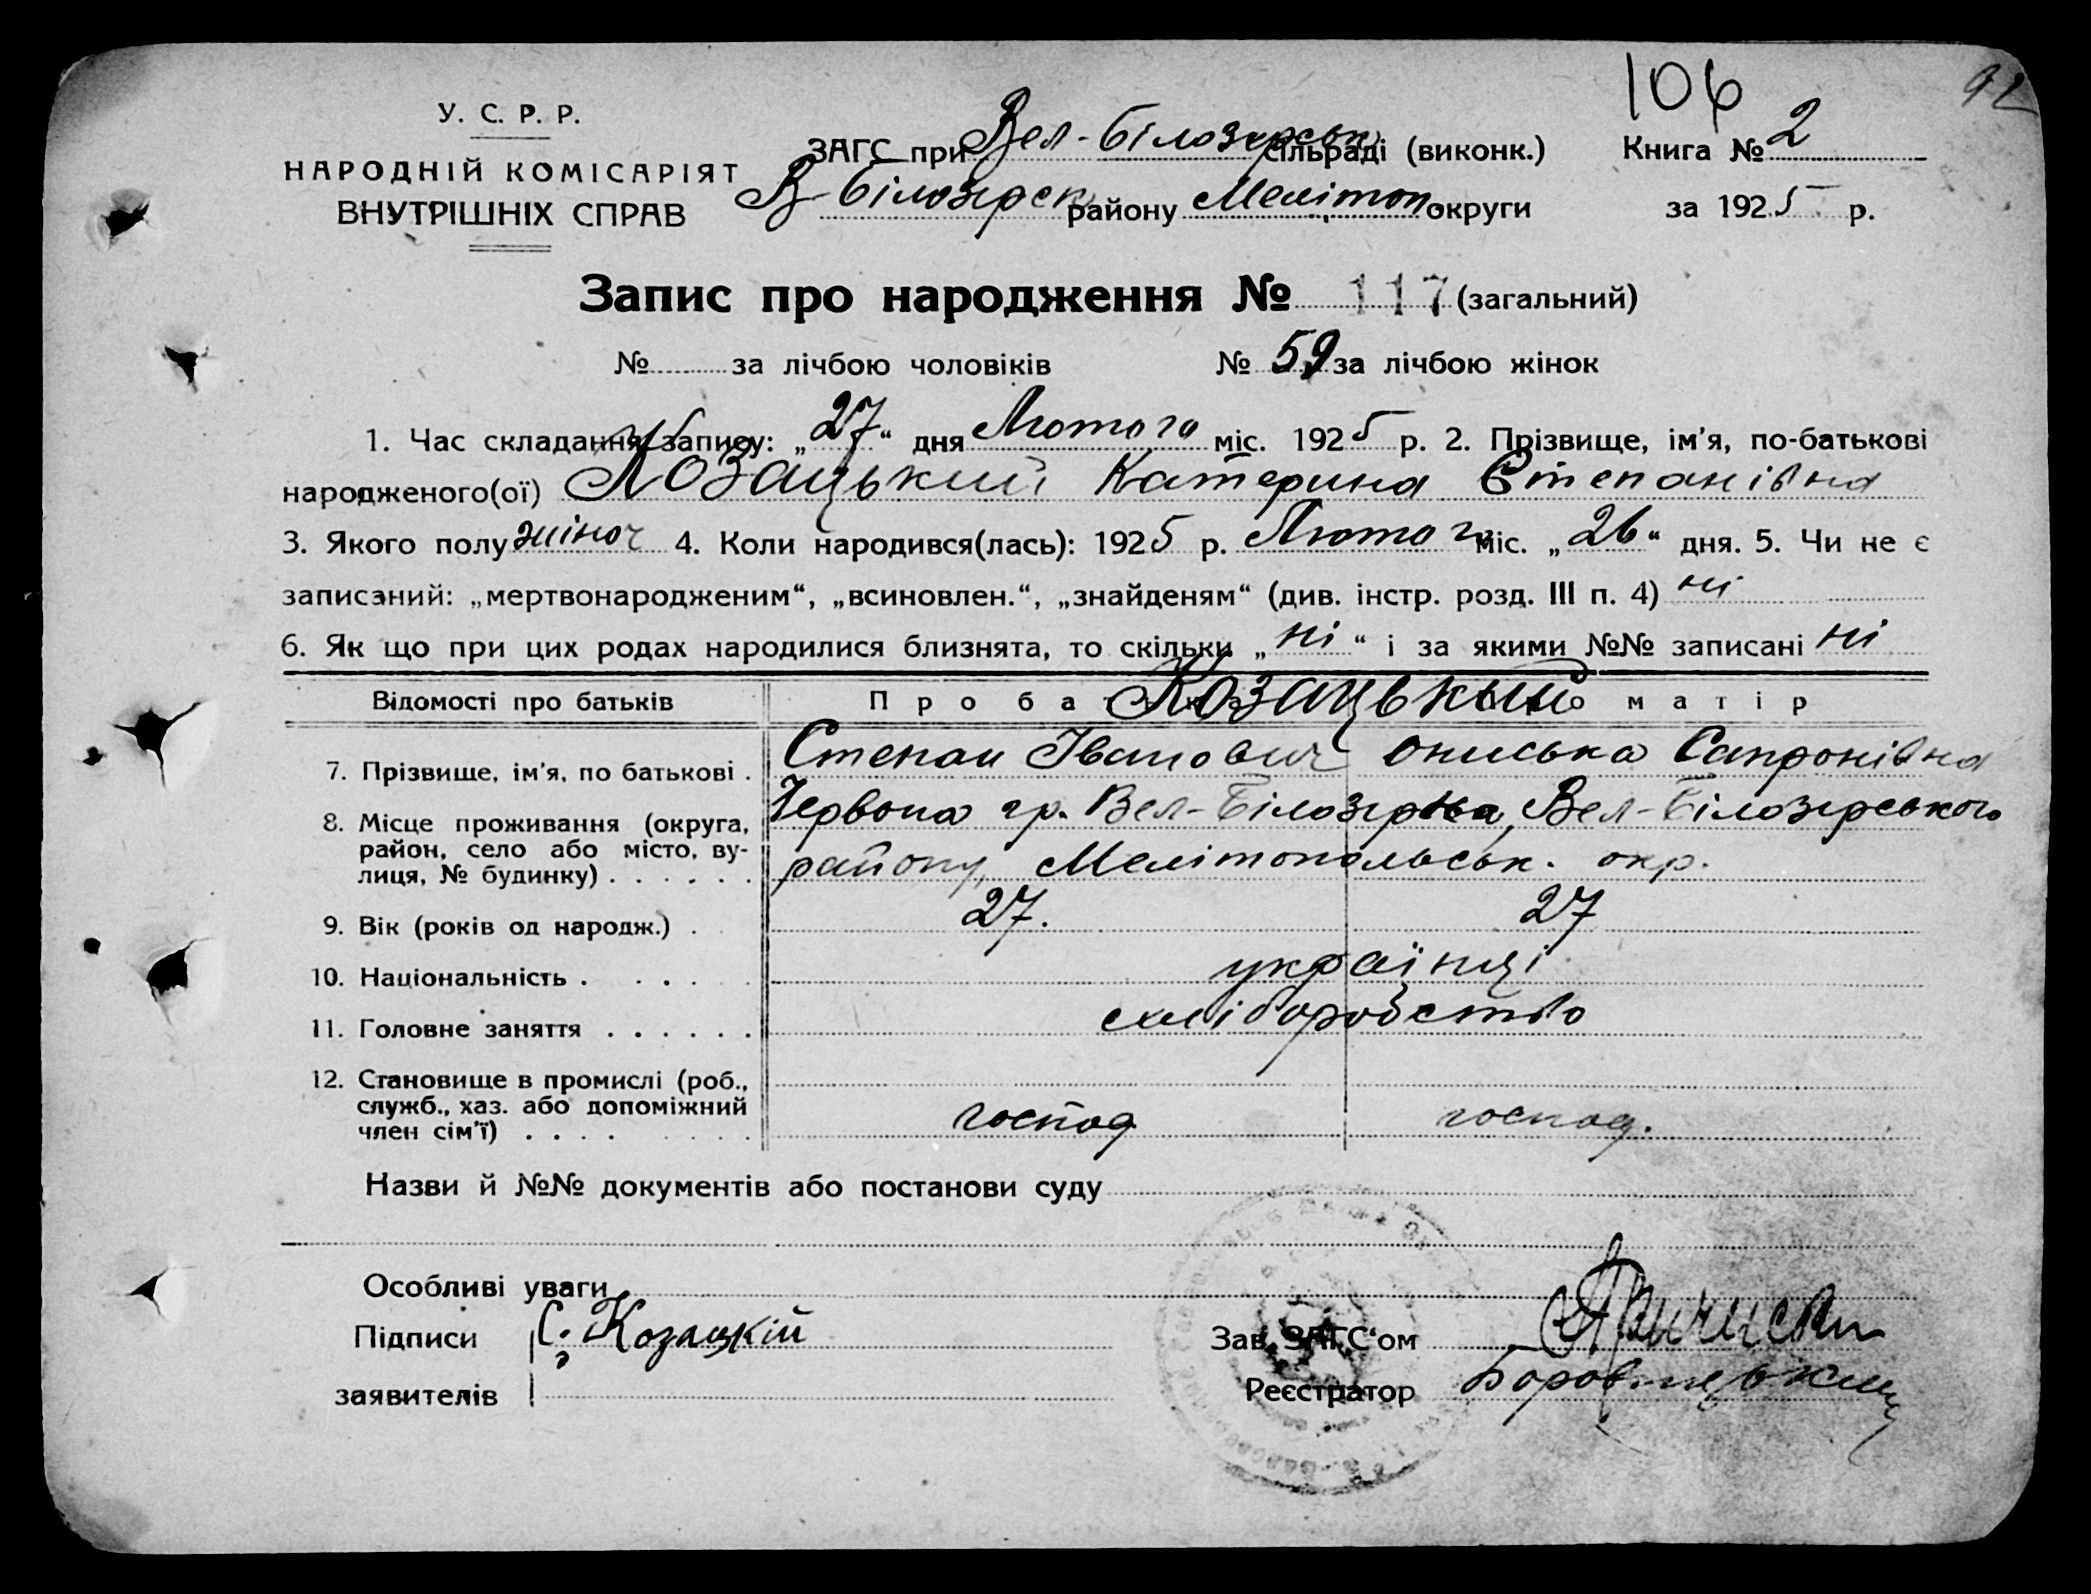 106
92
У. С. Р. Р.
НАРОДНІЙ КОМІСАРІЯТ
ВНУТРІШНІХ СПРАВ
ЗАГС при Вел-Білозерськ сільраді (виконк.)
В Білозерськ району Мелітоп. округи
Книга № 2
за 1925 р.
Запис про народження № 117 (загальний)
№ за лічбою чоловіків № 59 за лічбою жінок
1. Час складання запису: „27“ дня Лютого міс. 1925 р. 2. Прізвище, ім'я, по-батькові
народженого(ої) Козацький Катерина Степанівна
3. Якого полу жіноч 4. Коли народився(лась): 1925 р. Лютого міс. „26“ дня. 5. Чи не є
записаний: „мертвонародженим“, „всиновлен.“, „знайденям“ (див. інстр. розд. III п. 4) ні
6. Як що при цих родах народилися близнята, то скільки „ні“ і за якими №№ записані ні
Відомості про батьків Про батька Про матір
Козацький
7. Прізвище, ім'я, по батькові . Степан Іванович Ониська Сапронівна
8. Місце проживання (округа, Червона гр. Вел-Білозірка, Вел-Білозірського
район, село або місто, ву-
лиця, № будинку) . . . . . . району, Мелітопольськ. окр.
9. Вік (років од народж.) . 27. 27
10. Національність . . . . . українці
11. Головне заняття . . . . . . хліборобство
12. Становище в промислі (роб.,
служб., хаз. або допоміжний
член сім'ї) . . . . господ господ.
Назви й №№ документів або постанови суду
Особливі уваги
Підписи С. Козацкій
заявителів
Зав. ЗАГС'ом
Реєстратор